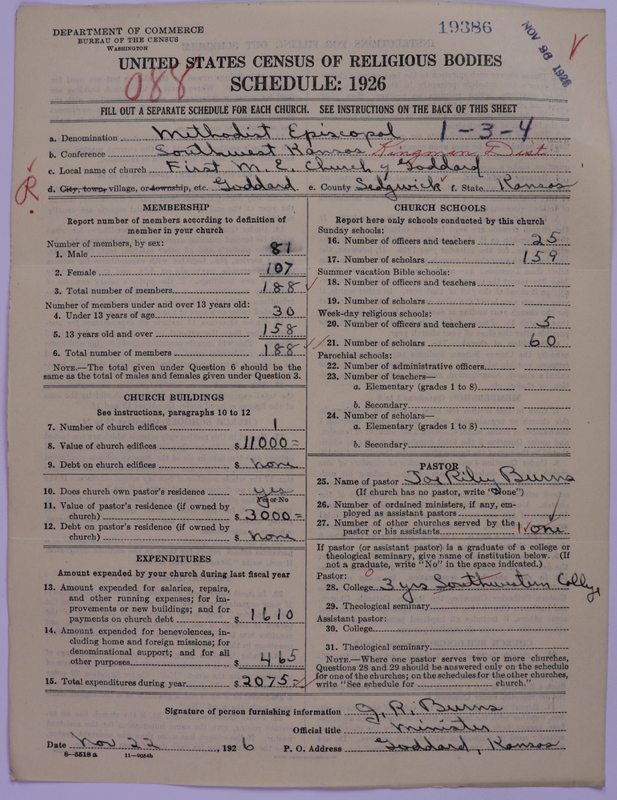 DEPARTMENT OF COMMERCE
BUREAU OF THE CENSUS
WASHINGTON
19386
NOV 26 1926
UNITED STATES CENSUS OF RELIGIOUS BODIES
088
SCHEDULE: 1926
FILL OUT A SEPARATE SCHEDULE FOR EACH CHURCH. SEE INSTRUCTIONS ON THE BACK OF THIS SHEET
a. Denomination Methodist Episcopal 1-3-4
b. Conference Southwest Kansas Kingman Dist
c. Local name of church First M. E. Church, Goddard
d. City, town, village, or township, etc. Goddard e. County Sedgwick f. State Kansas
R.
MEMBERSHIP
Report number of members according to definition of
member in your church
Number of members, by sex:
1. Male 81
2. Female 107
3. Total number of members 188
Number of members under and over 13 years old:
4. Under 13 years of age 30
5. 13 years old and over 158
6. Total number of members 188
NOTE.—The total given under Question 6 should be the
same as the total of males and females given under Question 3.
CHURCH BUILDINGS
See instructions, paragraphs 10 to 12
7. Number of church edifices 1
8. Value of church edifices $ 11000=
9. Debt on church edifices $ none
10. Does church own pastor's residence yes
Yes or No
11. Value of pastor's residence (if owned by
church) $ 3000=
12. Debt on pastor's residence (if owned by
church) $ none
EXPENDITURES
Amount expended by church during last fiscal year
13. Amount expended for salaries, repairs,
and other running expenses; for im-
provements or new buildings; and for
payments on church debt $ 1610
14. Amount expended for benevolences, in-
cluding home and foreign missions; for
denominational support; and for all
other purposes $ 465
15. Total expenditures during year $ 2075=
CHURCH SCHOOLS
Report here only schools conducted by this church
Sunday schools:
16. Number of officers and teachers 25
17. Number of scholars 159
Summer vacation Bible schools:
18. Number of officers and teachers
19. Number of scholars
Week-day religious schools:
20. Number of officers and teachers 5
21. Number of scholars 60
Parochial schools:
22. Number of administrative officers
23. Number of teachers—
a. Elementary (grades 1 to 8)
b. Secondary
24. Number of scholars—
a. Elementary (grades 1 to 8)
b. Secondary
PASTOR
25. Name of pastor Joe Riley Burns
(If church has no pastor, write "None")
26. Number of ordained ministers, if any, em-
ployed as assistant pastors
27. Number of other churches served by the
pastor or his assistants 1 one
If pastor (or assistant pastor) is a graduate of a college or
theological seminary, give name of institution below. (If
not a graduate, write "No" in the space indicated.)
Pastor:
28. College 0 3 yrs Southwestern College
29. Theological seminary
Assistant pastor:
30. College
31. Theological seminary
NOTE.—Where one pastor serves two or more churches,
Questions 28 and 29 should be answered only on the schedule
for one of the churches; on the schedules for the other churches,
write "See schedule for church."
Signature of person furnishing information J. R. Burns
Official title Minister
Date Nov 22, 1926 P. O. Address Goddard, Kansas
8-5518 a 11-9054b